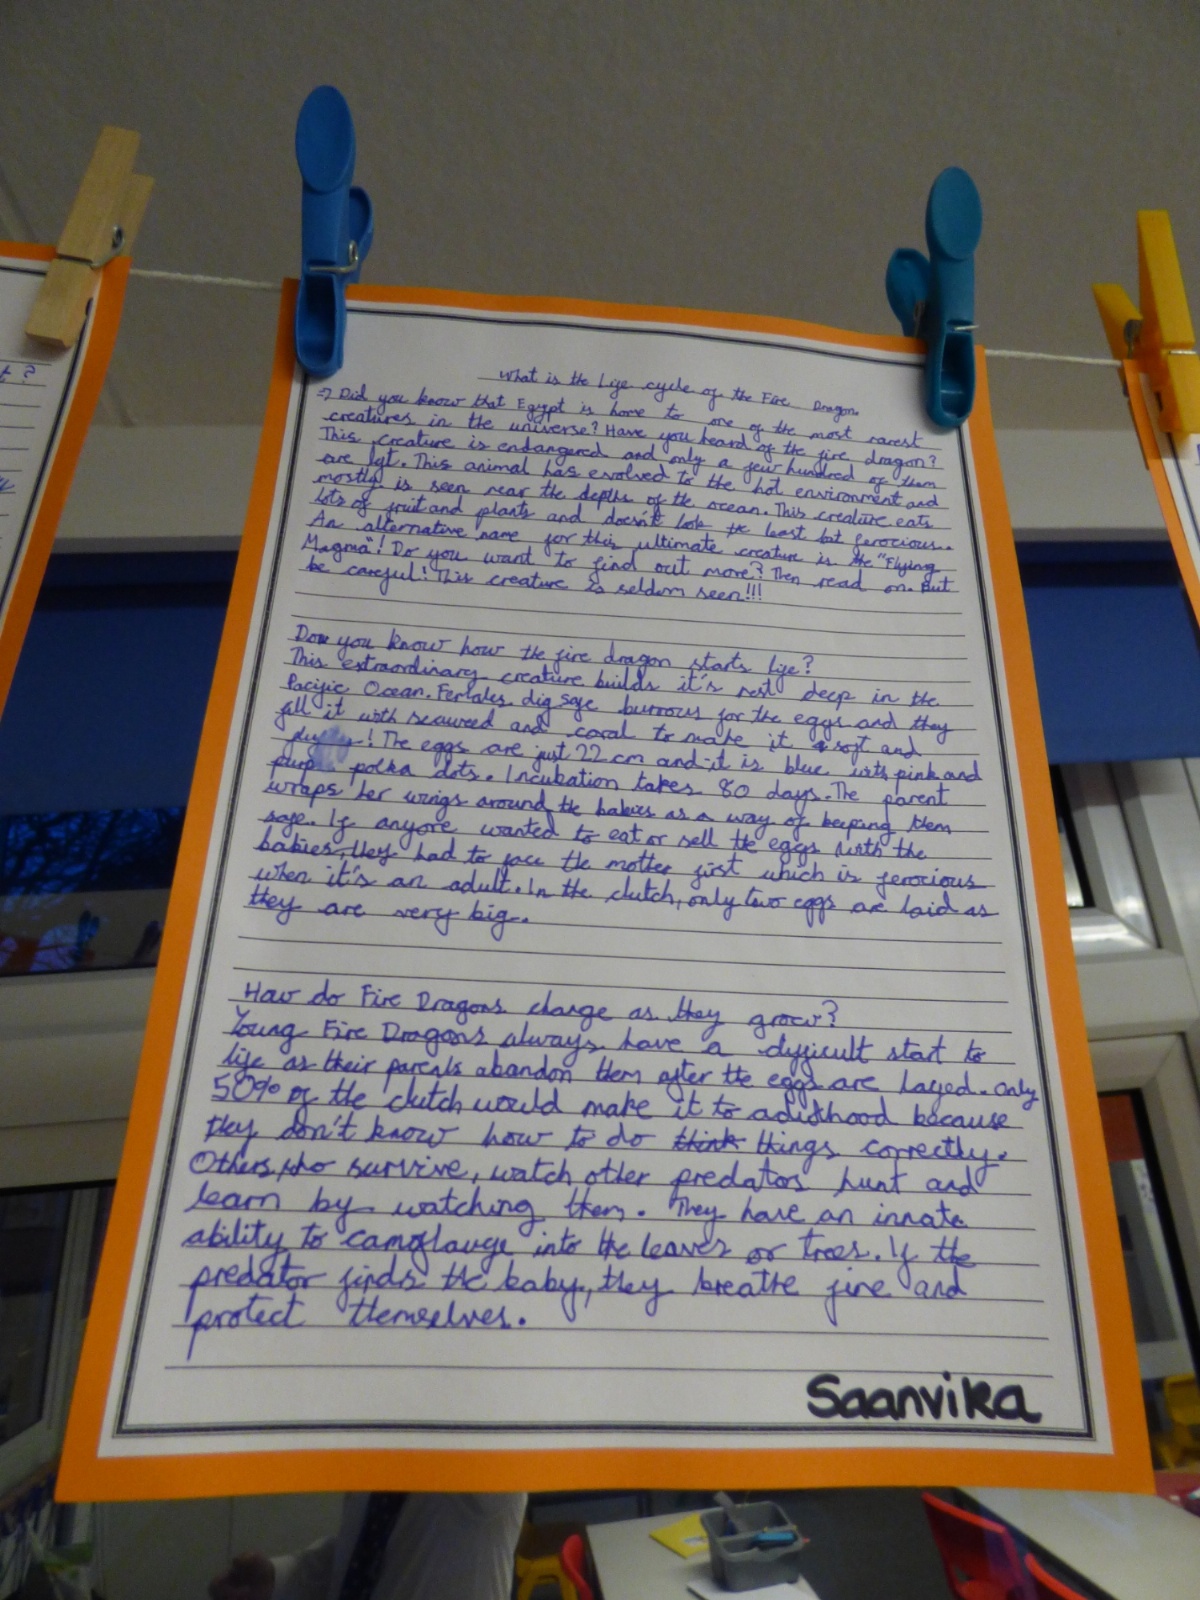 What is the Life cycle of the Fire Dragon
→ Did you know that Egypt is home to one of the most rarest
creatures in the universe? Have you heard of the fire dragon?
This creature is endangered and only a few hundred of them
are left. This animal has evolved to the hot environment and
mostly is seen near the depths of the ocean. This creature eats
lots of fruit and plants and doesn't look the least but ferocious.
An alternative name for this ultimate creature is the "Flying
Magma"! Do you want to find out more? Then read on. But
be careful! This creature is seldom seen!!!
Do you know how the fire dragon starts life?
This extraordinary creature builds it's nest deep in the
Pacific Ocean. Females dig safe burrows for the eggs and they
fill it with seaweed and coral to make it soft and
! The eggs are just 22 cm and it is blue with pink and
purp polka dots. Incubation takes 80 days. The parent
wraps her wings around the babies as a way of keeping them
safe. If anyone wanted to eat or sell the eggs with the
babies, they had to face the mother first which is ferocious
when it's an adult. In the clutch, only two eggs are laid as
they are very big.
How do Fire Dragons change as they grow?
Young Fire Dragons always have a difficult start to
life as their parents abandon them after the eggs are layed. Only
50% of the clutch would make it to adulthood because
they don't know how to do think things correctly.
Others, who survive, watch other predators hunt and
learn by watching them. They have an innate
ability to camoflauge into the leaves or trees. If the
predator finds the baby, they breathe fire and
protect themselves.
Saanvika
t?